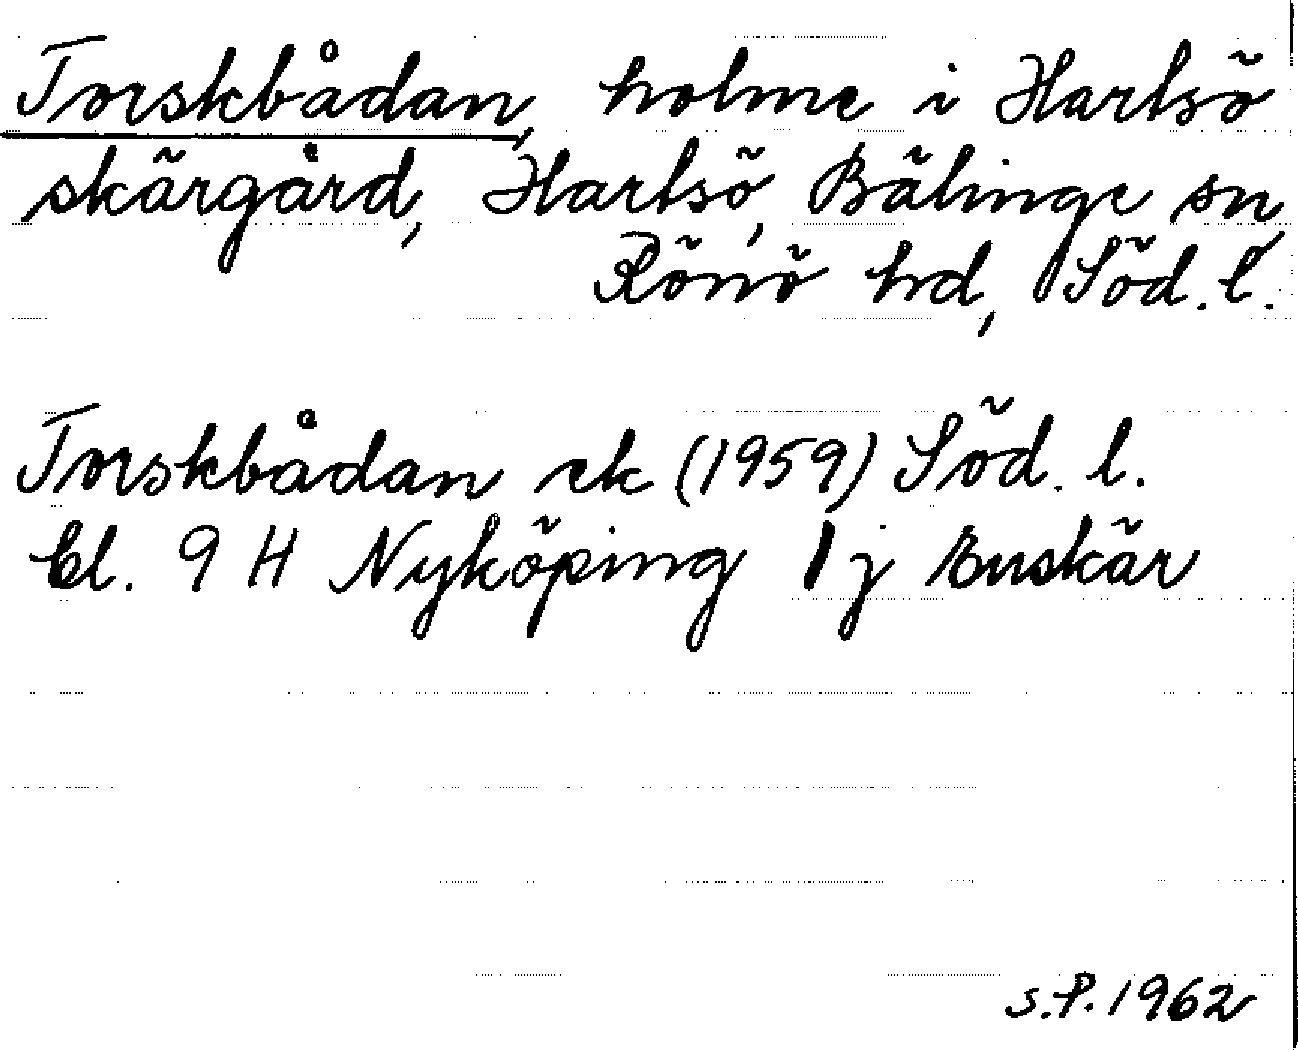 Torskbådan, holme i Hartsö
skärgård, Hartsö, Bälinge sn,
Rönö hd, Söd. l.
Torskbådan ek (1959) Söd. l.
bl. 9 H Nyköping 1 j Buskär
S.P. 1962